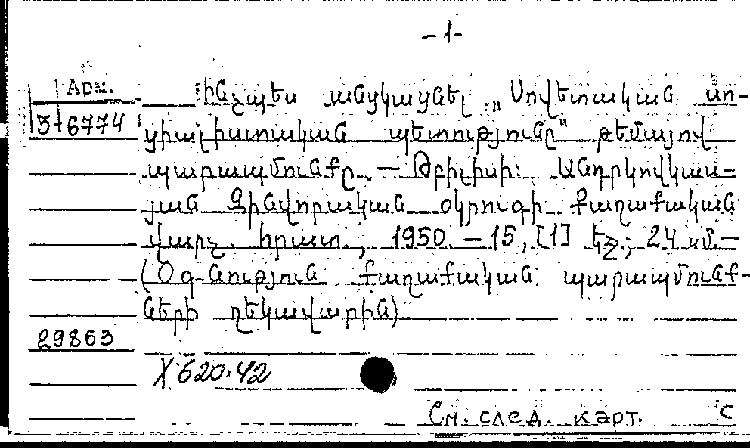 -1-
Арм.
Ինչպես անցկացնել „Սովետական սո-
3-6774
ցիալիստական պետությունը" թեմայով
պարապմունքը. — Թբիլիսի: Անդրկովկաս-
յան Զինվորական օկրուգի Քաղաքական
վարչ. հրատ., 1950. — 15, [1] էջ; 24 սմ. —
(Օգնություն քաղաքական պարապմունք-
ների ղեկավարին)
29863
X 620.42
См. след. карт. С